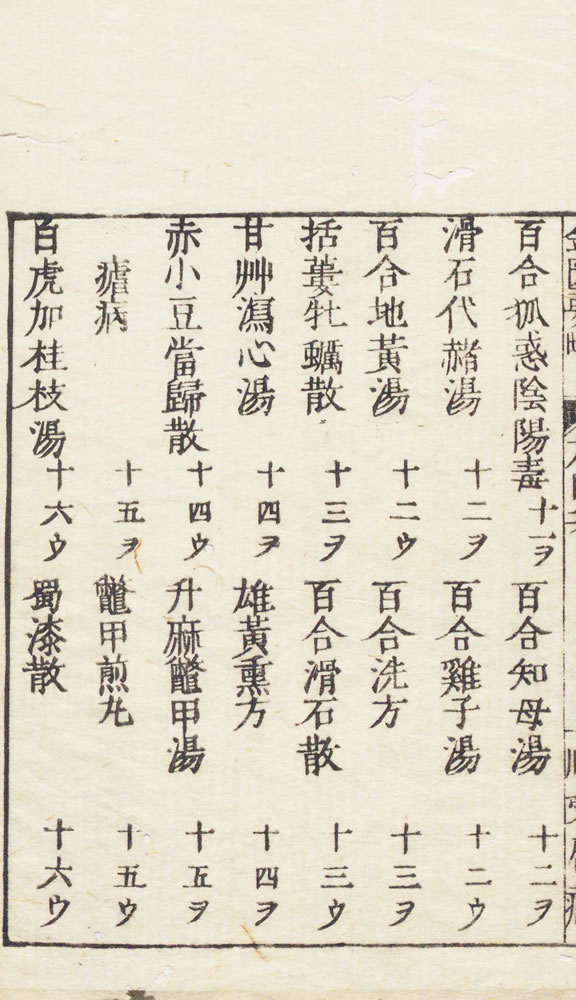 百合狐惑陰陽毒 十一ヲ 百合知母湯 十二ヲ
滑石代赭湯 十二ヲ 百合雞子湯 十二ウ
百合地黃湯 十二ウ 百合洗方 十三ヲ
括蔞牡蠣散 十三ヲ 百合滑石散 十三ウ
甘艸瀉心湯 十四ヲ 雄黃熏方 十四ヲ
赤小豆當歸散 十四ウ 升麻鼈甲湯 十五ヲ
瘧病 十五ヲ 鼈甲煎丸 十五ウ
白虎加桂枝湯 十六ウ 蜀漆散 十六ウ